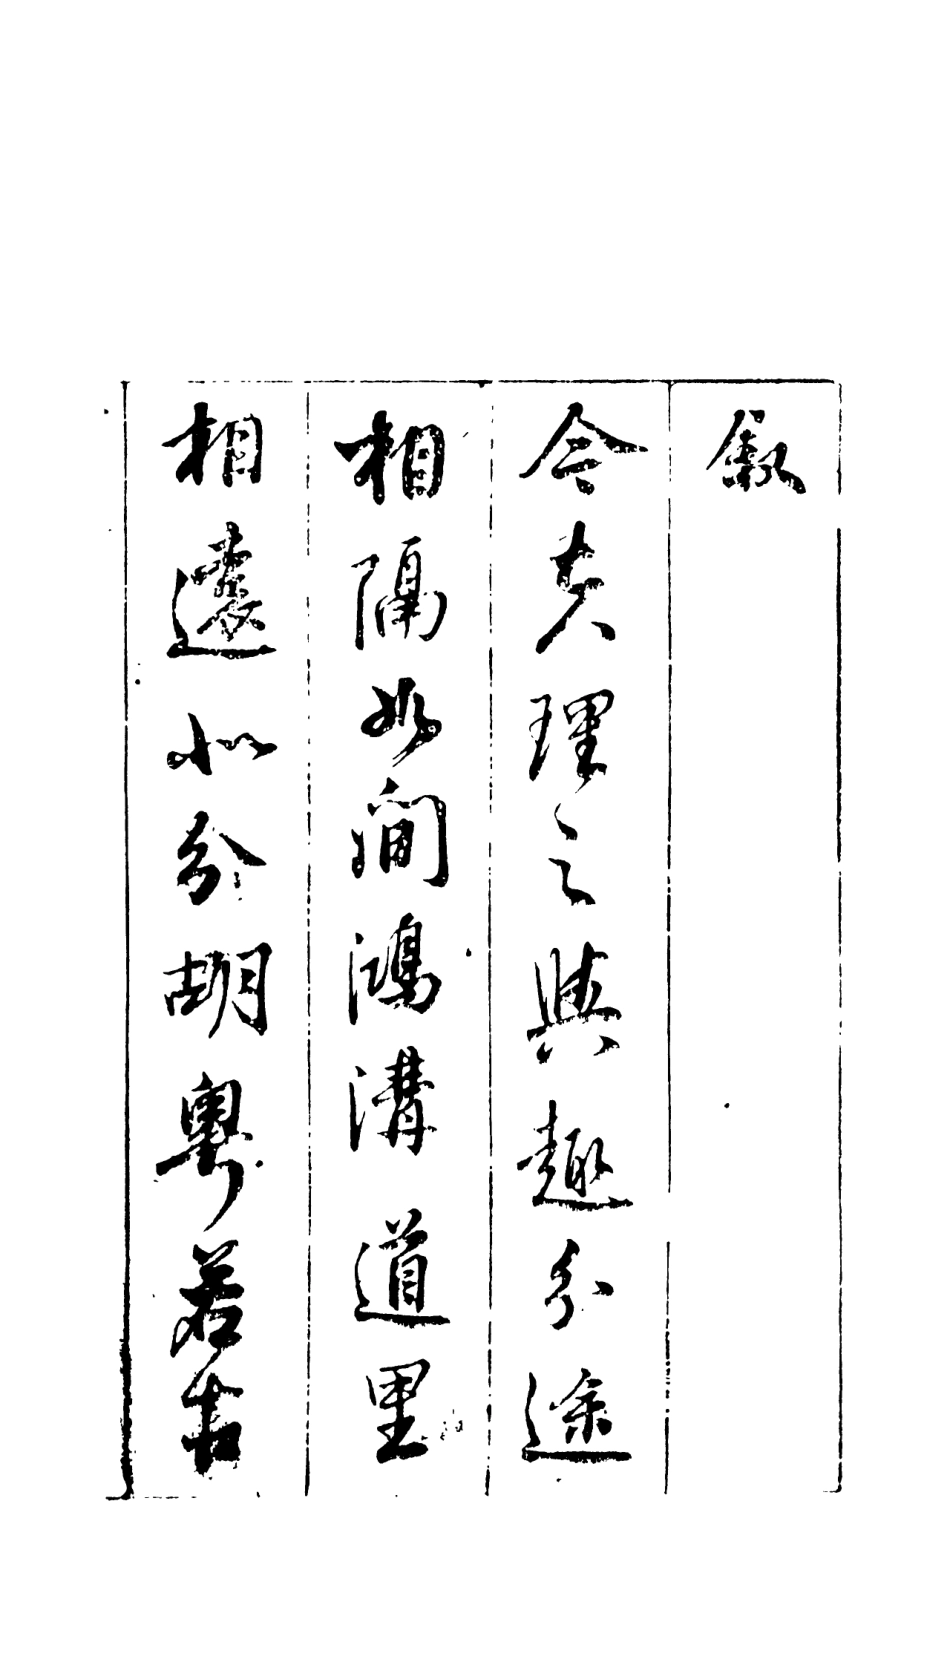 叙
今夫理之與趣分途
相隔如澗鴻溝道里
相遠似分胡粤若古